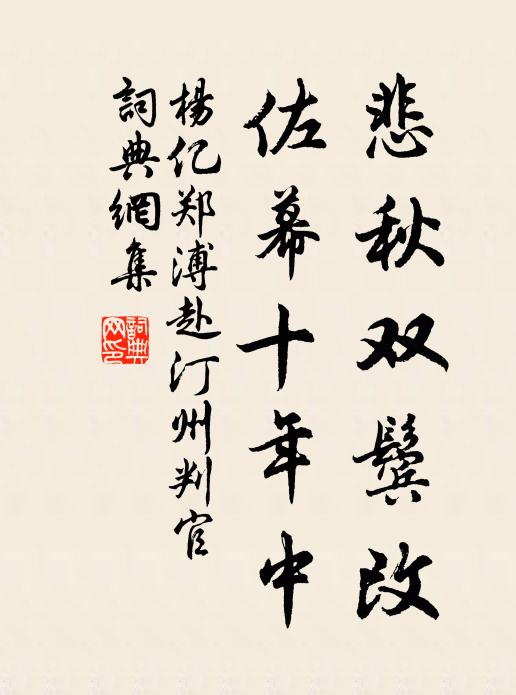 悲秋双鬓改
佐幕十年中
楊亿郑溥赴汀州判官
詞典網集
詞典网印